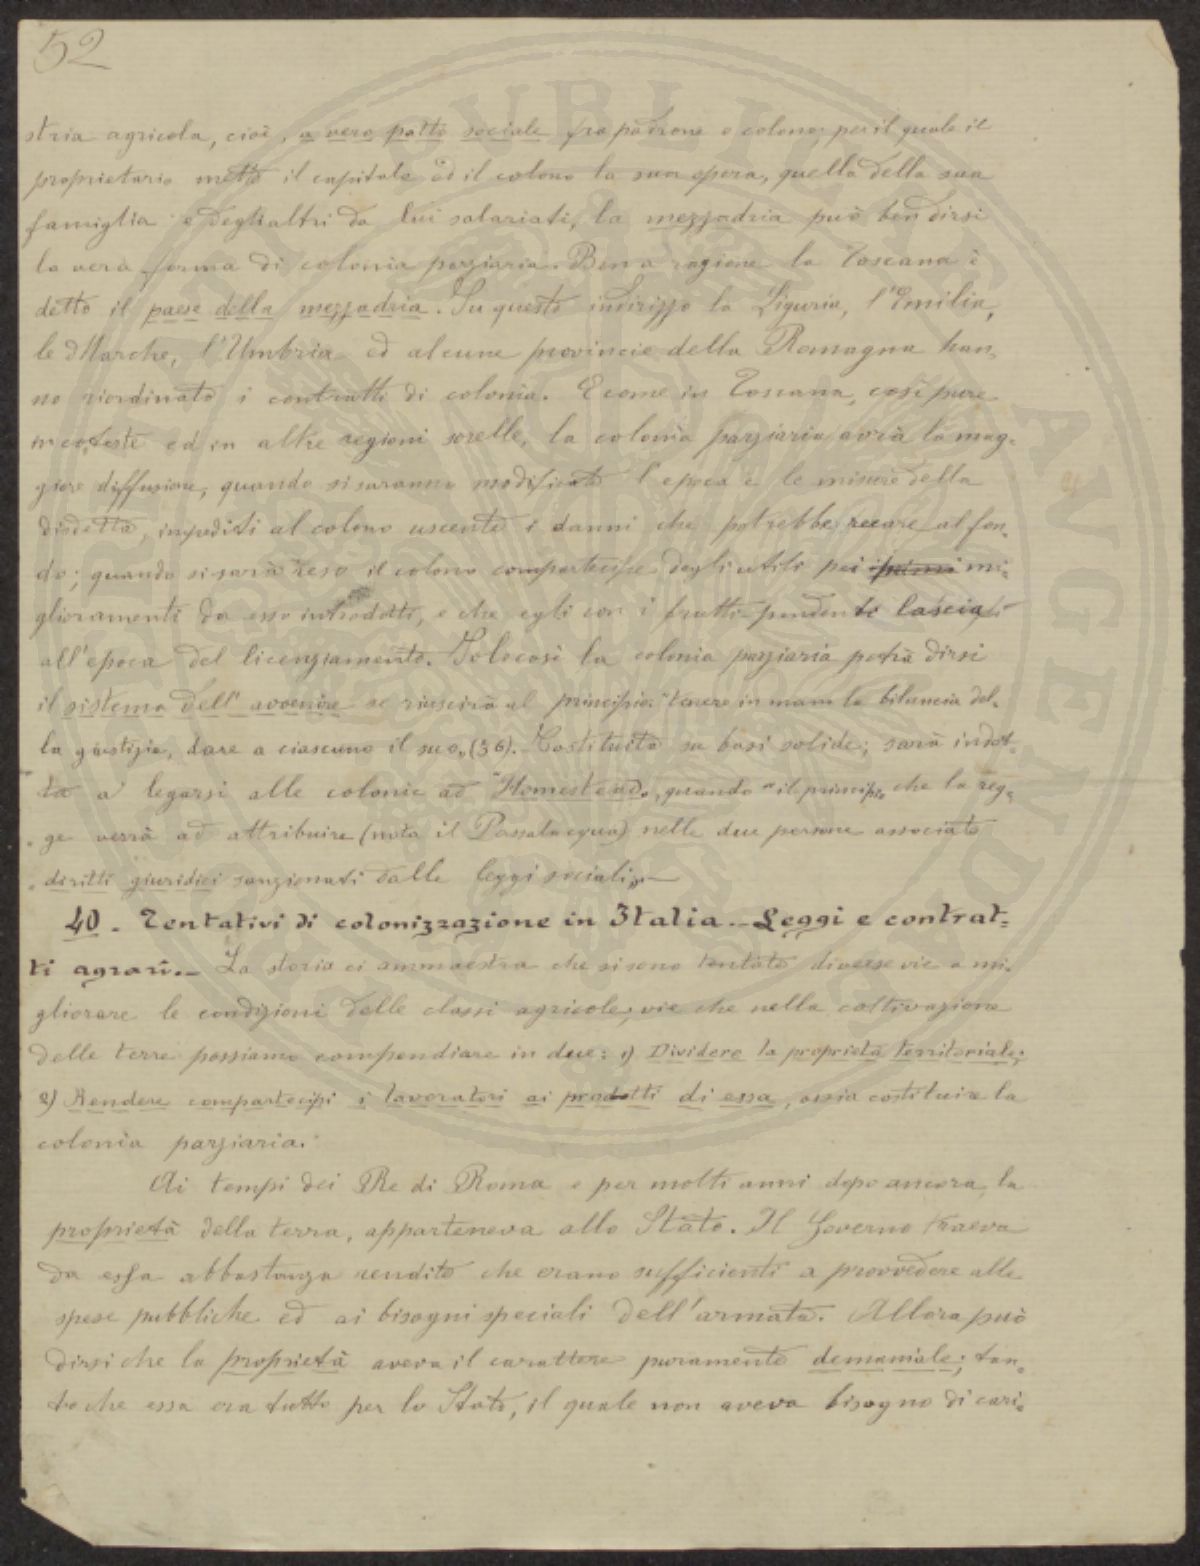 52
stria agricola, cioè, a vero patto sociale fra padrone e colono; per il quale il
proprietario mette il capitale ed il colono la sua opera, quella della sua
famiglia e degli altri da lui salariati, la mezzadria può ben dirsi
la vera forma di colonia parziaria. Ben a ragione la Toscana è
detto il paese della mezzadria. Su questo indirizzo la Liguria, l'Emilia,
le Marche, l'Umbria ed alcune provincie della Romagna han-
no riordinato i contratti di colonia. E come in Toscana, così pure
in coteste ed in altre regioni sorelle, la colonia parziaria avrà la mag-
giore diffusione, quando si saranno modificate l'epoca e le misure della
disdetta, impediti al colono uscente i danni che potrebbe recare al fon-
do; quando si sarà reso il colono compartecipe degli utili pei mi-
glioramenti da esso introdotti, e che egli con i frutti pendenti lasciati
all'epoca del licenziamento. Solo così la colonia parziaria potrà dirsi
il sistema dell'avvenire se riuscirà al principio: "tenere in mano la bilancia del-
la giustizia, dare a ciascuno il suo" (36). Costituita su basi solide; sarà indot-
ta a legarsi alle colonie ad "Homestead", quando "il principio che la reg-
ge verrà ad attribuire (nota il Passalacqua) nelle due persone associate
diritti giuridici sanzionati dalle leggi sociali".
40. Tentativi di colonizzazione in Italia. Leggi e contrat-
ti agrarî. La storia ci ammaestra che si sono tentate diverse vie a mi-
gliorare le condizioni delle classi agricole; vie che nella coltivazione
delle terre possiamo compendiare in due: 1) Dividere la proprietà territoriale;
2) Rendere compartecipi i lavoratori ai prodotti di essa, ossia costituire la
colonia parziaria.
Ai tempi dei Re di Roma e per molti anni dopo ancora, la
proprietà della terra, apparteneva allo Stato. Il Governo traeva
da essa abbastanza rendite che erano sufficienti a provvedere alle
spese pubbliche ed ai bisogni speciali dell'armata. Allora può
dirsi che la proprietà aveva il carattere puramente demaniale; tan-
to che essa era tutto per lo Stato, il quale non aveva bisogno di cari-